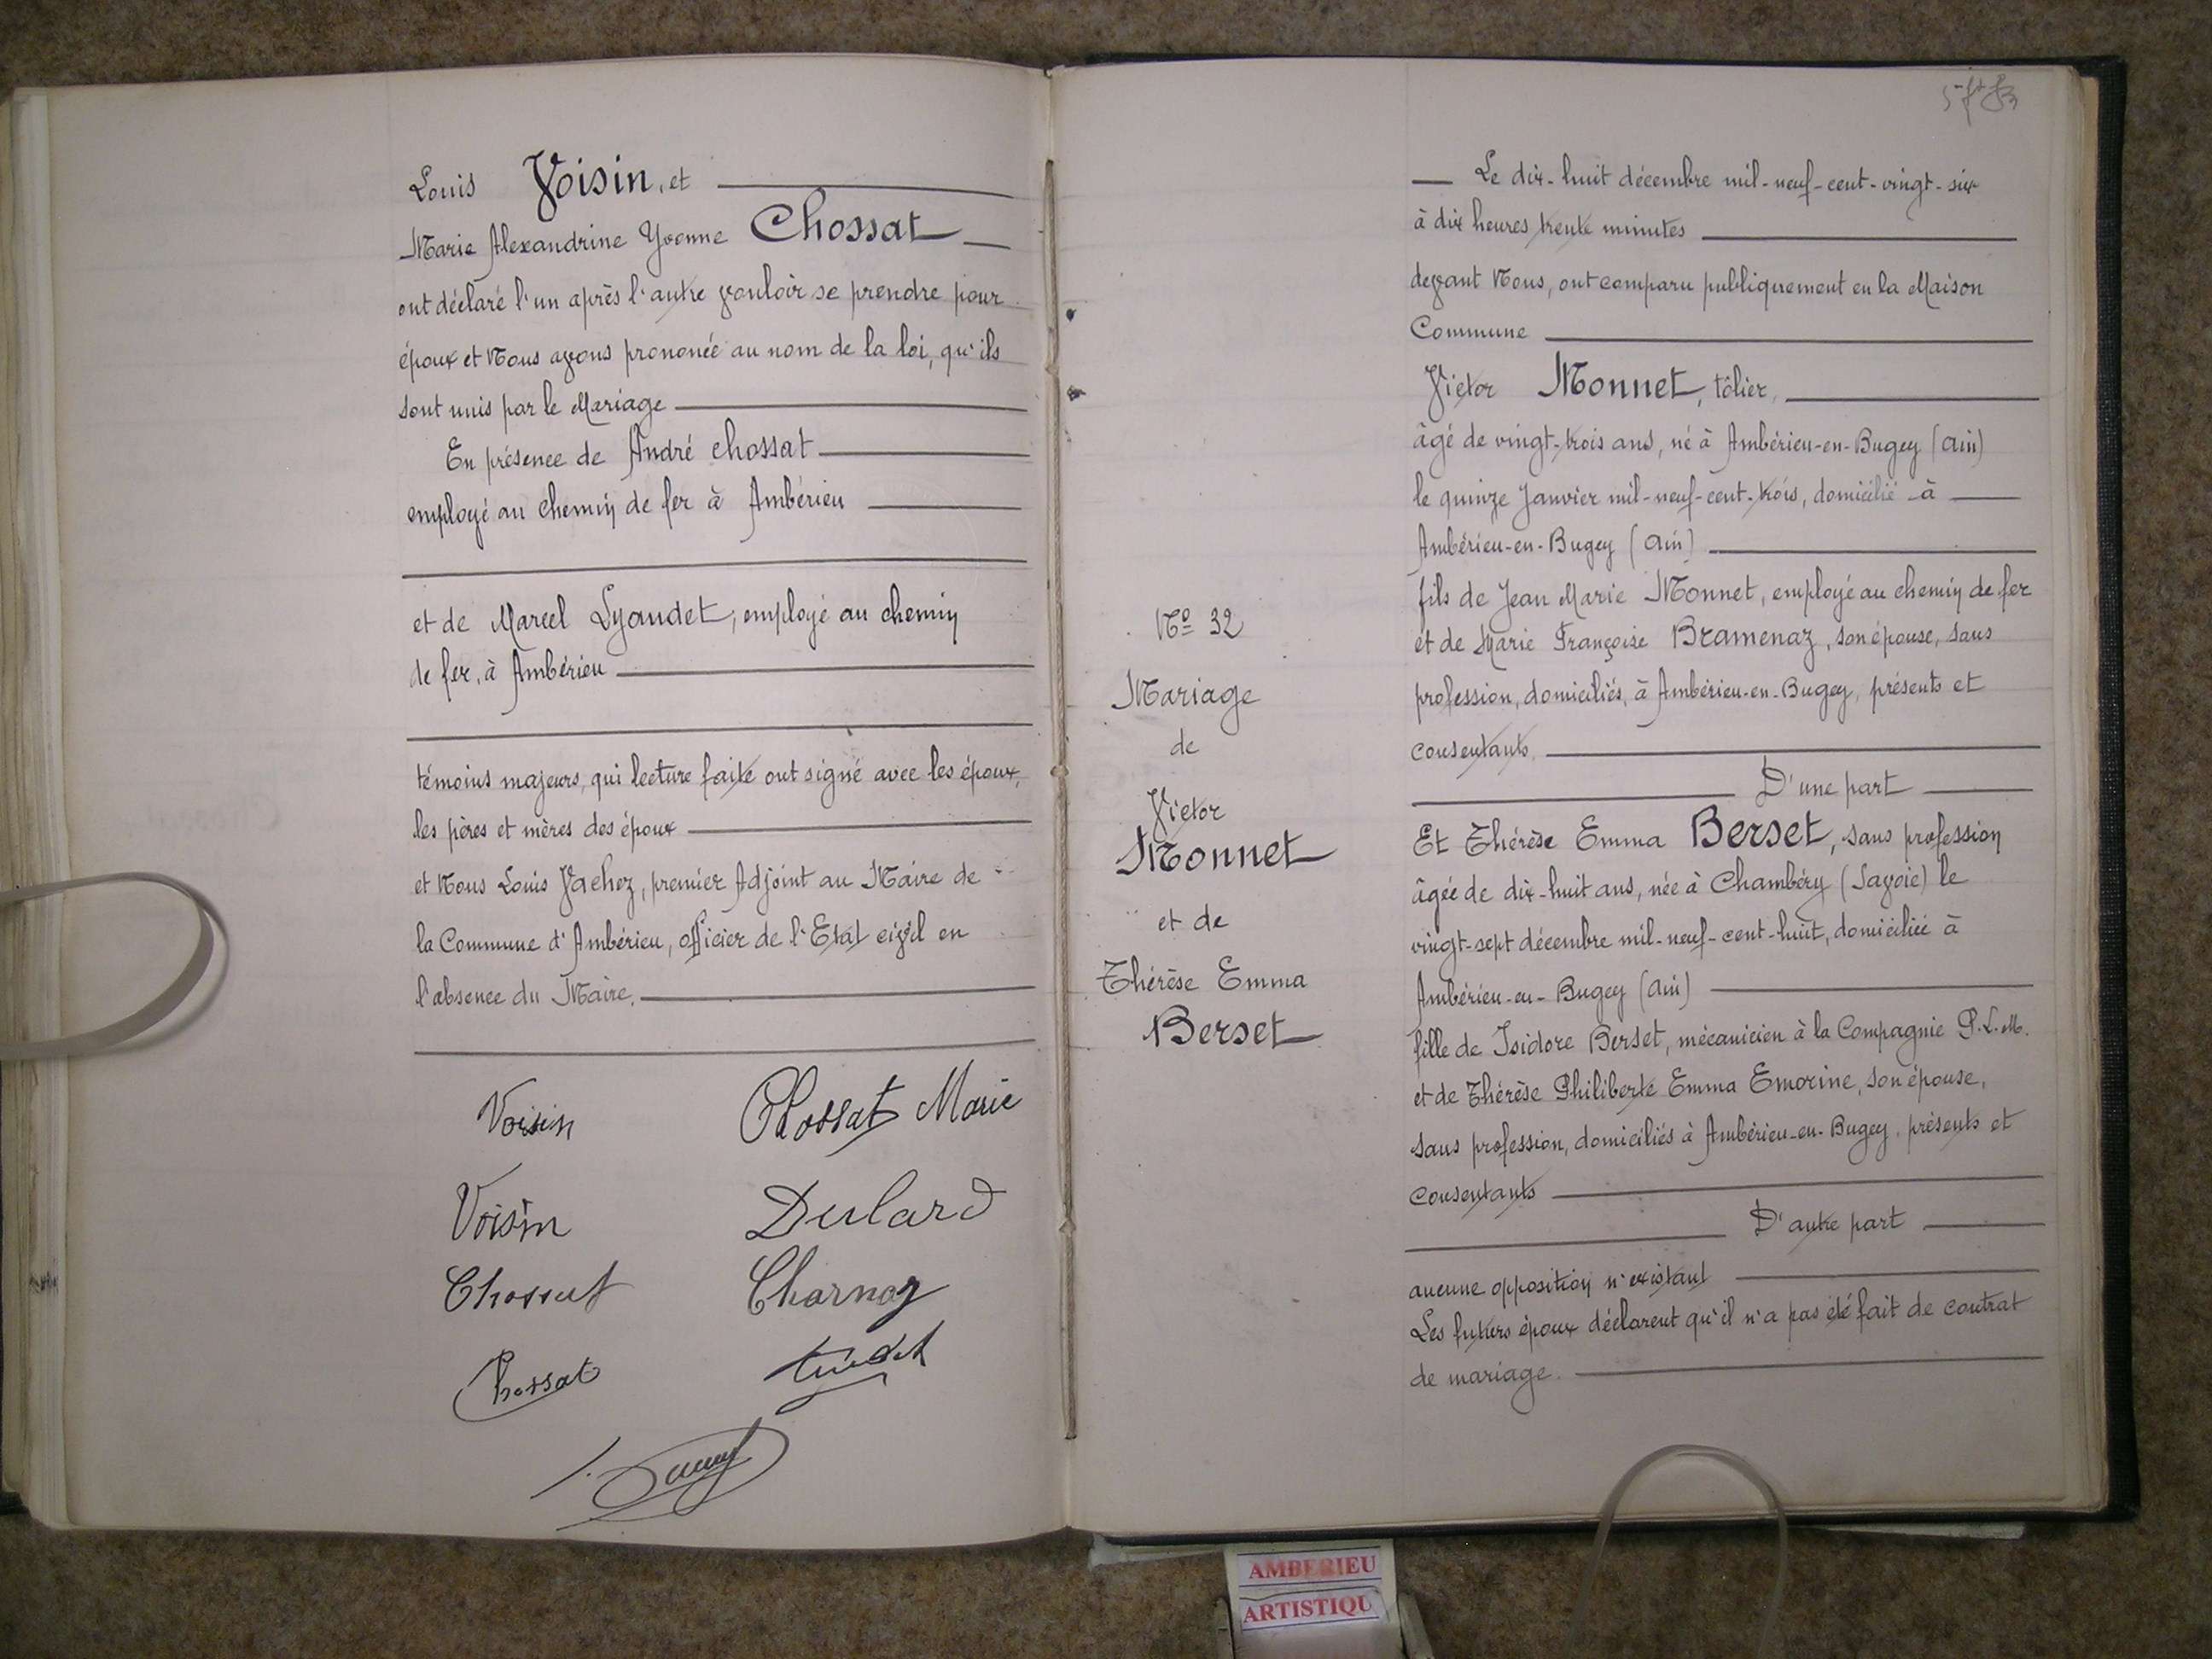 Louis Voisin, et
Marie Alexandrine Yvonne Chossat
ont déclaré l'un après l'autre vouloir se prendre pour
époux et Nous avons prononcé au nom de la loi, qu'ils
sont unis par le Mariage
En présence de André Chossat
employé au chemin de fer à Ambérieu
et de Marcel Lyaudet, employé au chemin
de fer, à Ambérieu
témoins majeurs, qui lecture faite ont signé avec les époux,
les pères et mères des époux
et Nous Louis Vachez, premier Adjoint au Maire de
la Commune d'Ambérieu, officier de l'Etat civil en
l'absence du Maire.
Voisin Chossat Marie
Voisin Dulard
Chossat Charnay
Chossat
Nº 32
Mariage
de
Victor
Monnet
et de
Thérèse Emma
Berset
Le dix-huit décembre mil-neuf-cent-vingt-six
à dix heures trente minutes
devant Nous, ont comparu publiquement en la Maison
Commune
Victor Monnet, tôlier,
âgé de vingt-trois ans, né à Ambérieu-en-Bugey (Ain)
le quinze Janvier mil-neuf-cent-trois, domicilié à
Ambérieu-en-Bugey (Ain)
fils de Jean Marie Monnet, employé au chemin de fer
et de Marie Françoise Bramenaz, son épouse, sans
profession, domiciliés, à Ambérieu-en-Bugey, présents et
consentants,
D'une part
Et Thérèse Emma Berset, sans profession
âgée de dix-huit ans, née à Chambéry (Savoie) le
vingt-sept décembre mil-neuf-cent-huit, domiciliée à
Ambérieu-en-Bugey (Ain)
fille de Isidore Berset, mécanicien à la Compagnie P.L.M.
et de Thérèse Philiberte Emma Emorine, son épouse,
sans profession, domiciliés à Ambérieu-en-Bugey, présents et
consentants
D'autre part
aucune opposition n'existant
Les futurs époux déclarent qu'il n'a pas été fait de contrat
de mariage.
AMBERIEU
ARTISTIQU